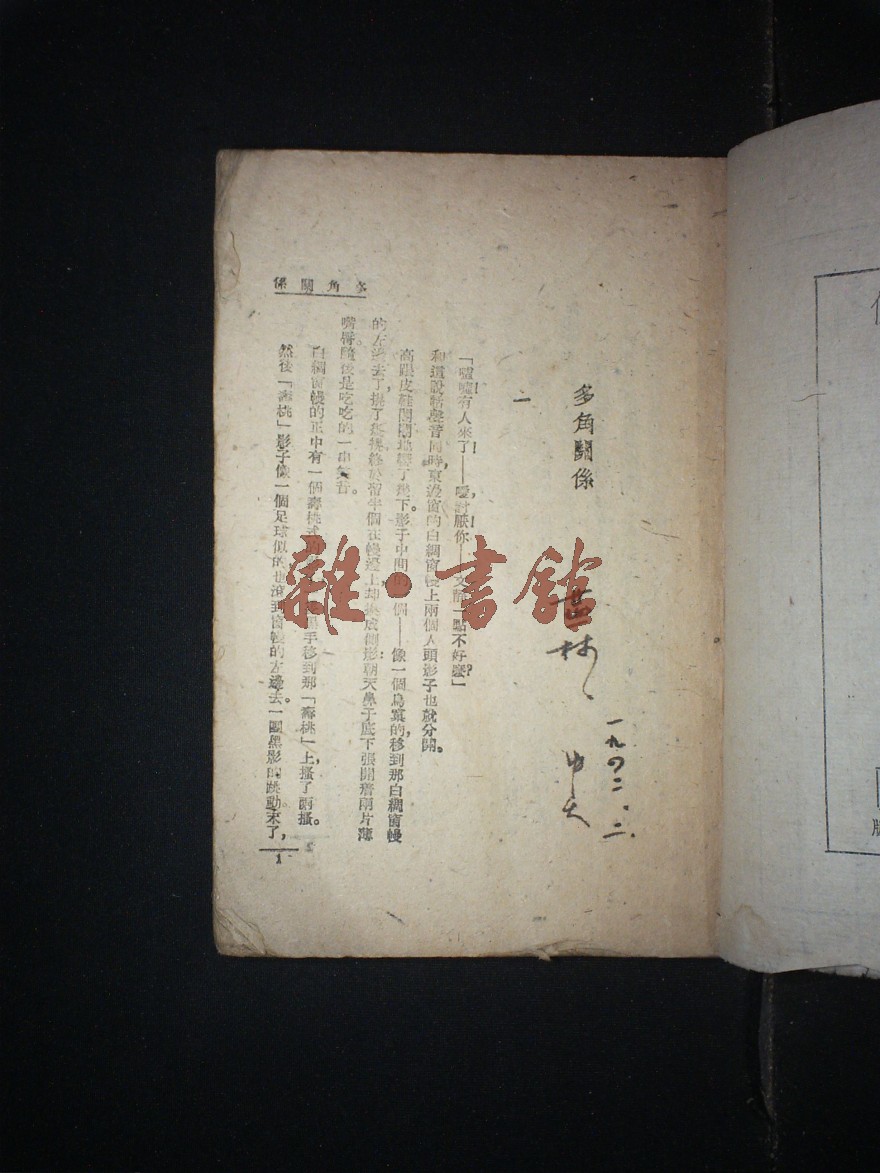 多角關係
一
「噓噓！有人來了！——噯，討厭！你——文靜一點不好麼？」
和這股話聲音同時，東邊窗的白綢窗幔上兩個人頭影子也就分開。
高跟皮鞋閣閣地響了幾下。影子中間的一個——像一個鳥窠的，移到那白綢窗幔
的左邊去了，
半個在幔邊上，却換成側影：朝天鼻子底下張開着兩片薄
嘴唇。隨後是吃吃的一串笑音。
白綢窗幔的正中有一個壽桃式的
黑手移到那「壽桃」上，搔了兩搔。
然後「壽桃」影子像一個足球似的也滾到窗幔的左邊去。一團黑影的跳動。末了，
多角關係
1
林、
一九四二、二
中大
雜·書館